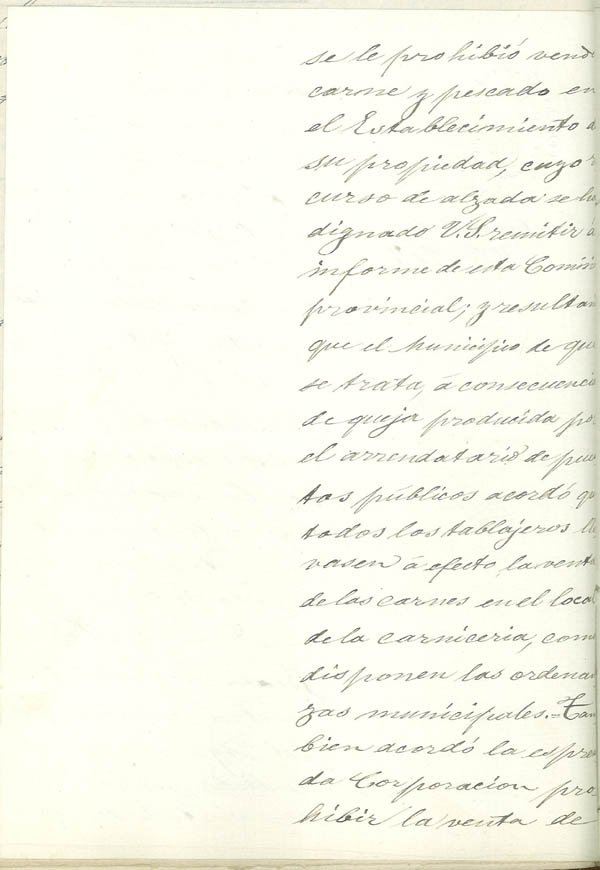 se le prohibió vend
carne y pescado en
el Establecimiento d
su propiedad, cuyo r
curso de alzada se ha
dignado V.S. remitir á
informe de esta Comisi
provincial; y resultan
que el Municipio de que
se trata, á consecuencia
de queja producida po
el arrendatario de pues
tos públicos acordó qu
todos los tablajeros lle
vasen á efecto la venta
de las carnes en el local
de la carniceria, como
disponen las ordenan
zas municipales.=Tam
bien acordó la espresa
da Corporacion pro-
hibir la venta de